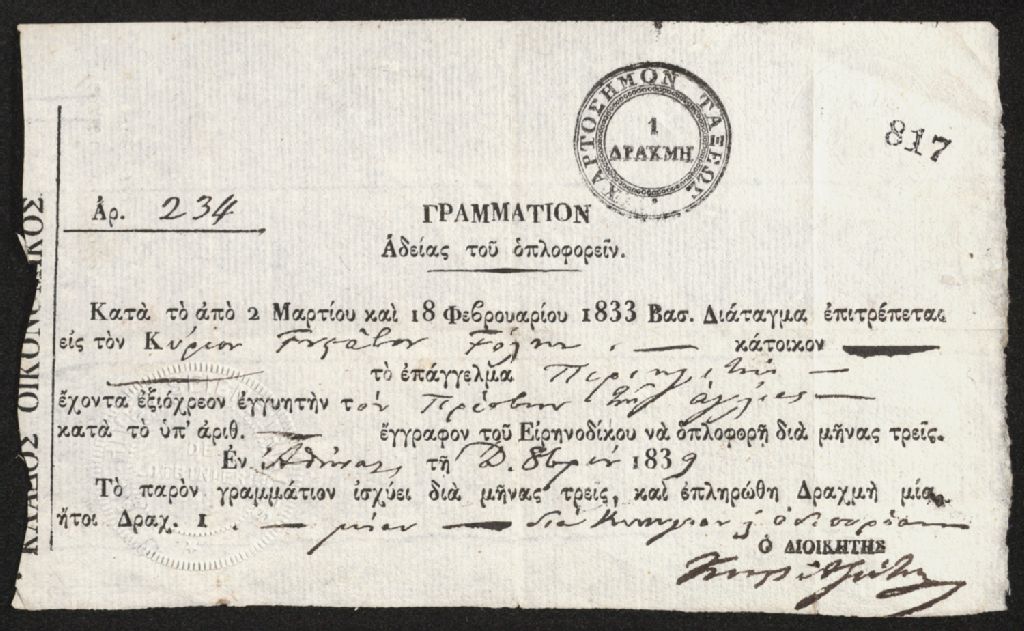 ΧΑΡΤΟΣΗΜΟΝ ΤΑΞΕΩΣ
1
ΔΡΑΧΜΗ
817
Ἀρ. 234
ΓΡΑΜΜΑΤΙΟΝ
Ἀδείας τοῦ ὁπλοφορεῖν.
Κατὰ τὸ ἀπὸ 2 Μαρτίου καὶ 18 Φεβρουαρίου 1833 Βασ. Διάταγμα ἐπιτρέπεται
εἰς τὸν Κύριον κάτοικον
τὸ ἐπάγγελμα Περιηγητὴν
ἔχοντα ἐξιόχρεον ἐγγυητὴν τὸν Πρέσβυν τῆς
κατὰ τὸ ὑπ' ἀριθ. ἔγγραφον τοῦ Εἰρηνοδίκου νὰ ὁπλοφορῇ διὰ μῆνας τρεῖς.
Ἐν Ἀθήναις τῇ 1839
Τὸ παρὸν γραμμάτιον ἰσχύει διὰ μῆνας τρεῖς, καὶ ἐπληρώθη Δραχμὴ μία,
ἤτοι Δραχ. 1. — μίαν — διὰ
Ὁ ΔΙΟΙΚΗΤΗΣ
ΚΛΑΔΟΣ ΟΙΚΟΝΟΜΙΚΟΣ